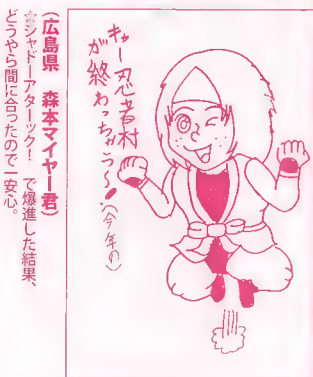 キャー忍者村
が終わっちゃう〜!(今年の)
(広島県　森本マイヤー君)
☆シャドーアターック!　で爆進した結果、
どうやら間に合ったので一安心。